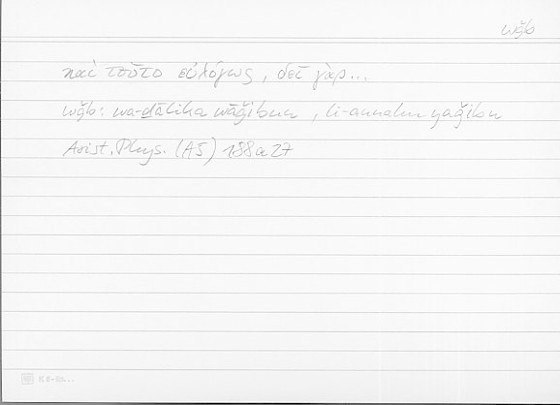 wǧb
καὶ τοῦτο εὐλόγως, δεῖ γὰρ...
wǧb: wa-ḏālika wāǧibun, li-annahu yaǧibu
Arist. Phys. (A5) 188a27